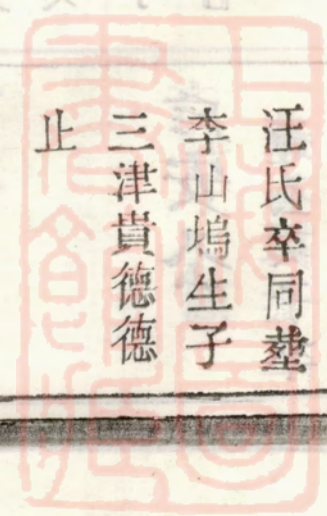 汪氏卒同塟
李山塢生子
三津貴德德
止